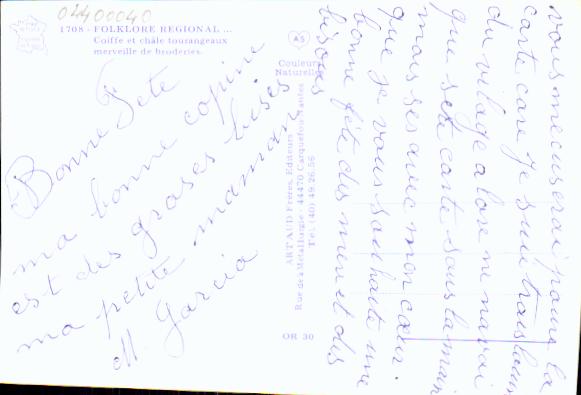 02400040
1708 - FOLKLORE REGIONAL ...
Coiffe et châle tourangeaux
merveille de broderies.
AS
Couleurs
Naturelles
ARTAUD Frères, Editeurs
Rue de la Métallurgie - 44470 Carquefou-Nantes
Tél. (40) 49.26.56
OR 30
Bonne Fete
ma bonne copine
est des groses bises
ma petite maman
M. Garcia
vous mecuserai pour la
carte care Je suie trais loin
du vilage alore
que sete carte sous la main
mais ses avec mon cœur.
que je vous souhaite une
bonne fête des mere et des
bisous